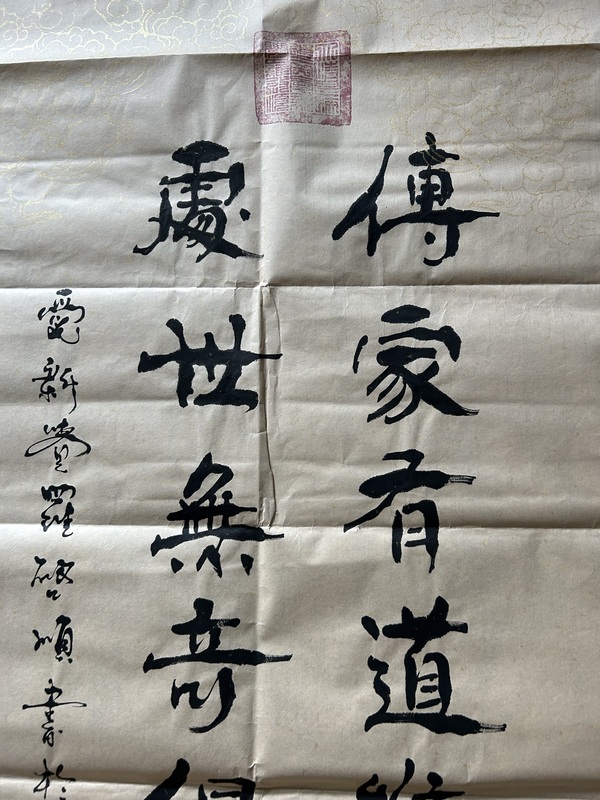 傳家有道
處世無奇
愛新覺羅啓順書於